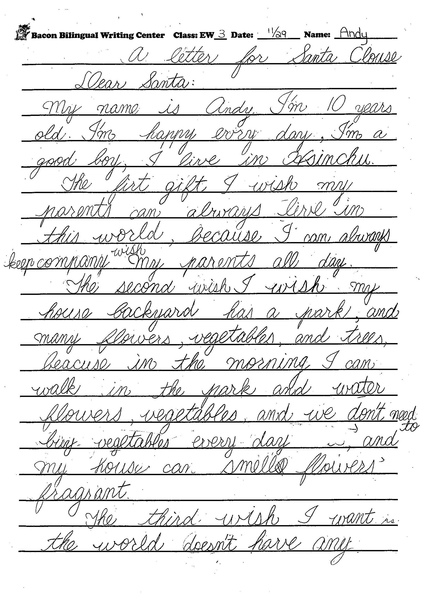 Bacon Bilingual Writing Center Class: EW 3 Date: 11/29 Name: Andy
A letter for Santa Clouse
Dear Santa:
My name is Andy. I'm 10 years
old. I'm happy evry day. I'm a
good boy, I live in Hsinchu.
The firt gift I wish my
parents can always live in
this world, because I can always
keep company wish My parents all day.
The second wish I wish my
house backyard has a park, and
many flowers, vegetables, and trees,
beacuse in the morning I can
walk in the park and water
flowers, vegetables, and we don't need to
buy vegetables every day, and
my house can smell flowers'
fragrant.
The third wish I want is
the world doesn't have any